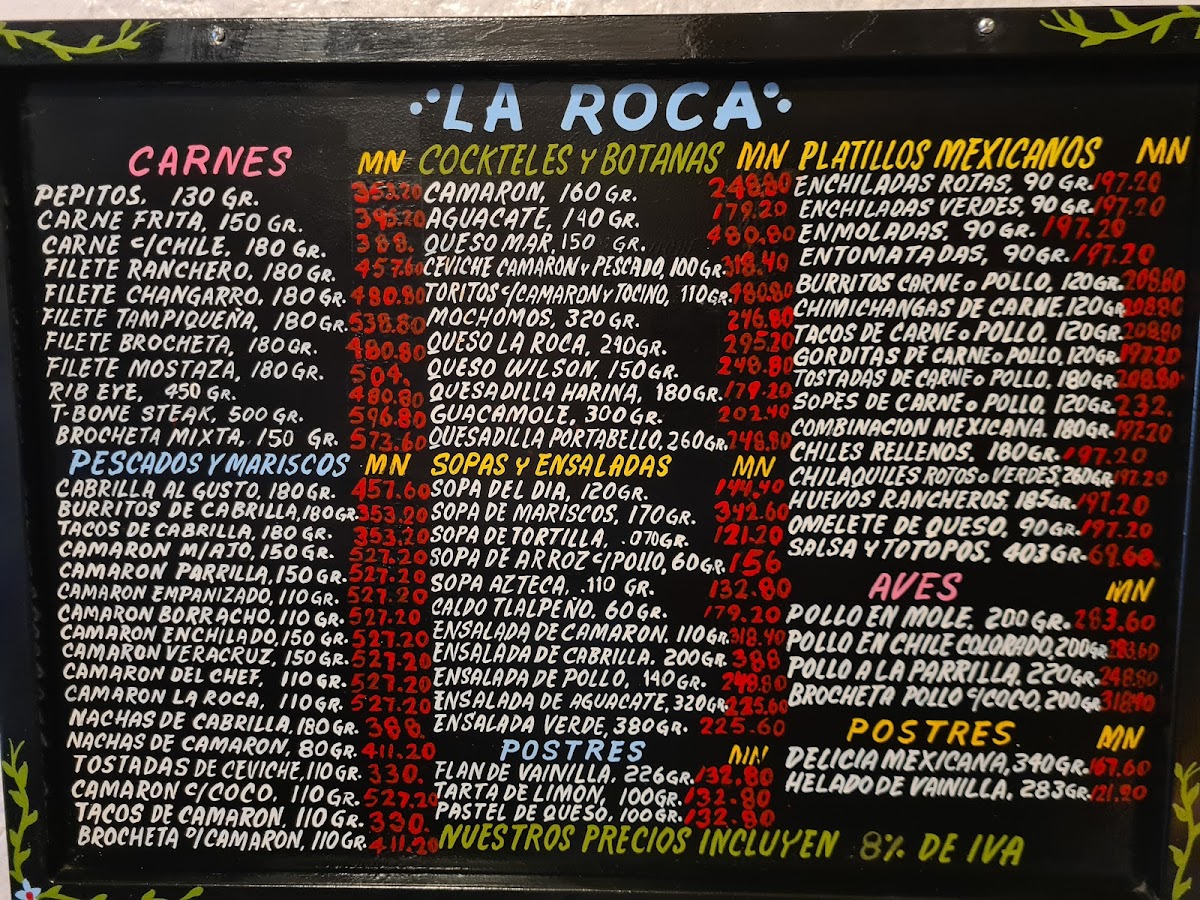 LA ROCA
CARNES MN
PEPITOS, 130 GR. 353.20
CARNE FRITA, 150 GR. 395.20
CARNE C/CHILE, 180 GR. 388.
FILETE RANCHERO, 180 GR. 457.60
FILETE CHANGARRO, 180 GR. 480.80
FILETE TAMPIQUEÑA, 180 GR. 538.80
FILETE BROCHETA, 180GR. 480.80
FILETE MOSTAZA, 180 GR. 504.
RIB EYE, 450 GR. 480.80
T-BONE STEAK, 500 GR. 596.80
BROCHETA MIXTA, 150 GR. 573.60
PESCADOS Y MARISCOS MN
CABRILLA AL GUSTO, 180 GR. 457.60
BURRITOS DE CABRILLA, 180 GR. 353.20
TACOS DE CABRILLA, 180 GR. 353.20
CAMARON M/AJO, 150 GR. 527.20
CAMARON PARRILLA, 150 GR. 527.20
CAMARON EMPANIZADO, 110 GR. 527.20
CAMARON BORRACHO, 110 GR. 527.20
CAMARON ENCHILADO, 150 GR. 527.20
CAMARON VERACRUZ, 150GR. 527.20
CAMARON DEL CHEF, 110GR. 527.20
CAMARON LA ROCA, 110GR. 527.20
NACHAS DE CABRILLA, 180 GR. 388.
NACHAS DE CAMARON, 80 GR. 411.20
TOSTADAS DE CEVICHE, 110 GR. 330.
CAMARON C/COCO, 110 GR. 527.20
TACOS DE CAMARON, 110 GR. 330.
BROCHETA C/CAMARON, 110 GR. 411.20
COCKTELES Y BOTANAS MN
CAMARON, 160 GR. 248.80
AGUACATE, 140 GR. 179.20
QUESO MAR, 150 GR. 480.80
CEVICHE CAMARON Y PESCADO, 100 GR. 318.40
TORITOS C/CAMARON Y TOCINO, 110 GR. 480.80
MOCHOMOS, 320 GR. 246.80
QUESO LA ROCA, 290GR. 295.20
QUESO WILSON, 150GR. 248.80
QUESADILLA HARINA, 180GR. 179.20
GUACAMOLE, 300 GR. 202.40
QUESADILLA PORTABELLO, 260 GR. 248.80
SOPAS Y ENSALADAS MN
SOPA DEL DIA, 120GR. 144.40
SOPA DE MARISCOS, 170GR. 342.60
SOPA DE TORTILLA, .070GR. 121.20
SOPA DE ARROZ C/POLLO, 60 GR. 156
SOPA AZTECA, .110 GR. 132.80
CALDO TLALPEÑO, 60 GR. 179.20
ENSALADA DE CAMARON, 110 GR. 318.40
ENSALADA DE CABRILLA. 200 GR. 388
ENSALADA DE POLLO, 140 GR. 248.80
ENSALADA DE AGUACATE, 320 GR. 225.60
ENSALADA VERDE, 380GR. 225.60
POSTRES MN
FLAN DE VAINILLA, 226 GR. 132.80
TARTA DE LIMON, 100GR. 132.80
PASTEL DE QUESO, 100GR. 132.80
PLATILLOS MEXICANOS MN
ENCHILADAS ROJAS, 90 GR. 197.20
ENCHILADAS VERDES, 90 GR. 197.20
ENMOLADAS, 90 GR. 197.20
ENTOMATADAS, 90GR. 197.20
BURRITOS CARNE O POLLO, 120 GR. 208.80
CHIMICHANGAS DE CARNE, 120 GR. 208.80
TACOS DE CARNE O POLLO, 120GR. 208.80
GORDITAS DE CARNE O POLLO, 120GR. 197.20
TOSTADAS DE CARNE O POLLO, 180 GR. 208.80
SOPES DE CARNE O POLLO, 120GR. 232.
COMBINACION MEXICANA. 180GR. 197.20
CHILES RELLENOS, 180GR. 197.20
CHILAQUILES ROJOS O VERDES, 260GR. 197.20
HUEVOS RANCHEROS, 185GR. 197.20
OMELETE DE QUESO, 90 GR. 197.20
SALSA Y TOTOPOS. 403 GR. 69.60.
AVES MN
POLLO EN MOLE, 200 GR. 283.60
POLLO EN CHILE COLORADO, 200GR. 283.60
POLLO A LA PARRILLA, 220GR. 248.80
BROCHETA POLLO C/COCO, 200 GR 318.40
POSTRES MN
DELICIA MEXICANA, 340GR. 167.60
HELADO DE VAINILLA, 283GR. 121.20
NUESTROS PRECIOS INCLUYEN 8% DE IVA